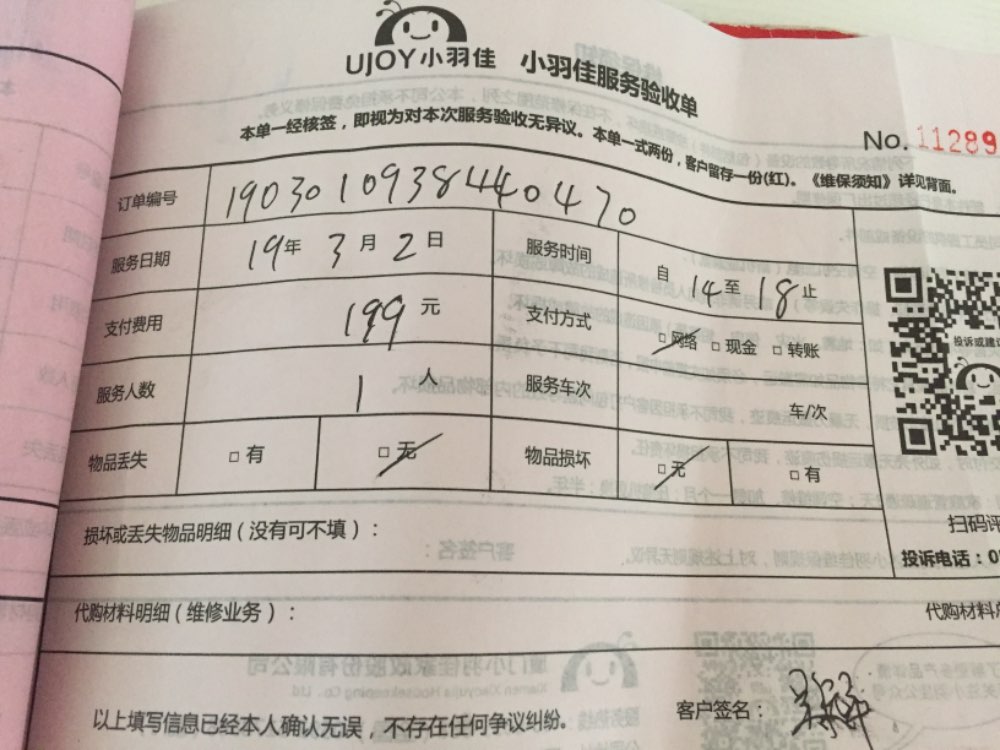 UJOY小羽佳 小羽佳服务验收单
本单一经核签，即视为对本次服务验收无异议。本单一式两份，客户留存一份(红)。《维保须知》详见背面。
No. 11289
订单编号 190301093844040470
服务日期 19年 3月 2日 服务时间 自 14 至 18 止
支付费用 199 元 支付方式 □网络 □现金 □转账
服务人数 1 人 服务车次 车/次
物品丢失 □有 □无 物品损坏 □无 □有
投诉或建议
损坏或丢失物品明细（没有可不填）：
扫码评
投诉电话：0
代购材料明细（维修业务）： 代购材料
以上填写信息已经本人确认无误，不存在任何争议纠纷。 客户签名：